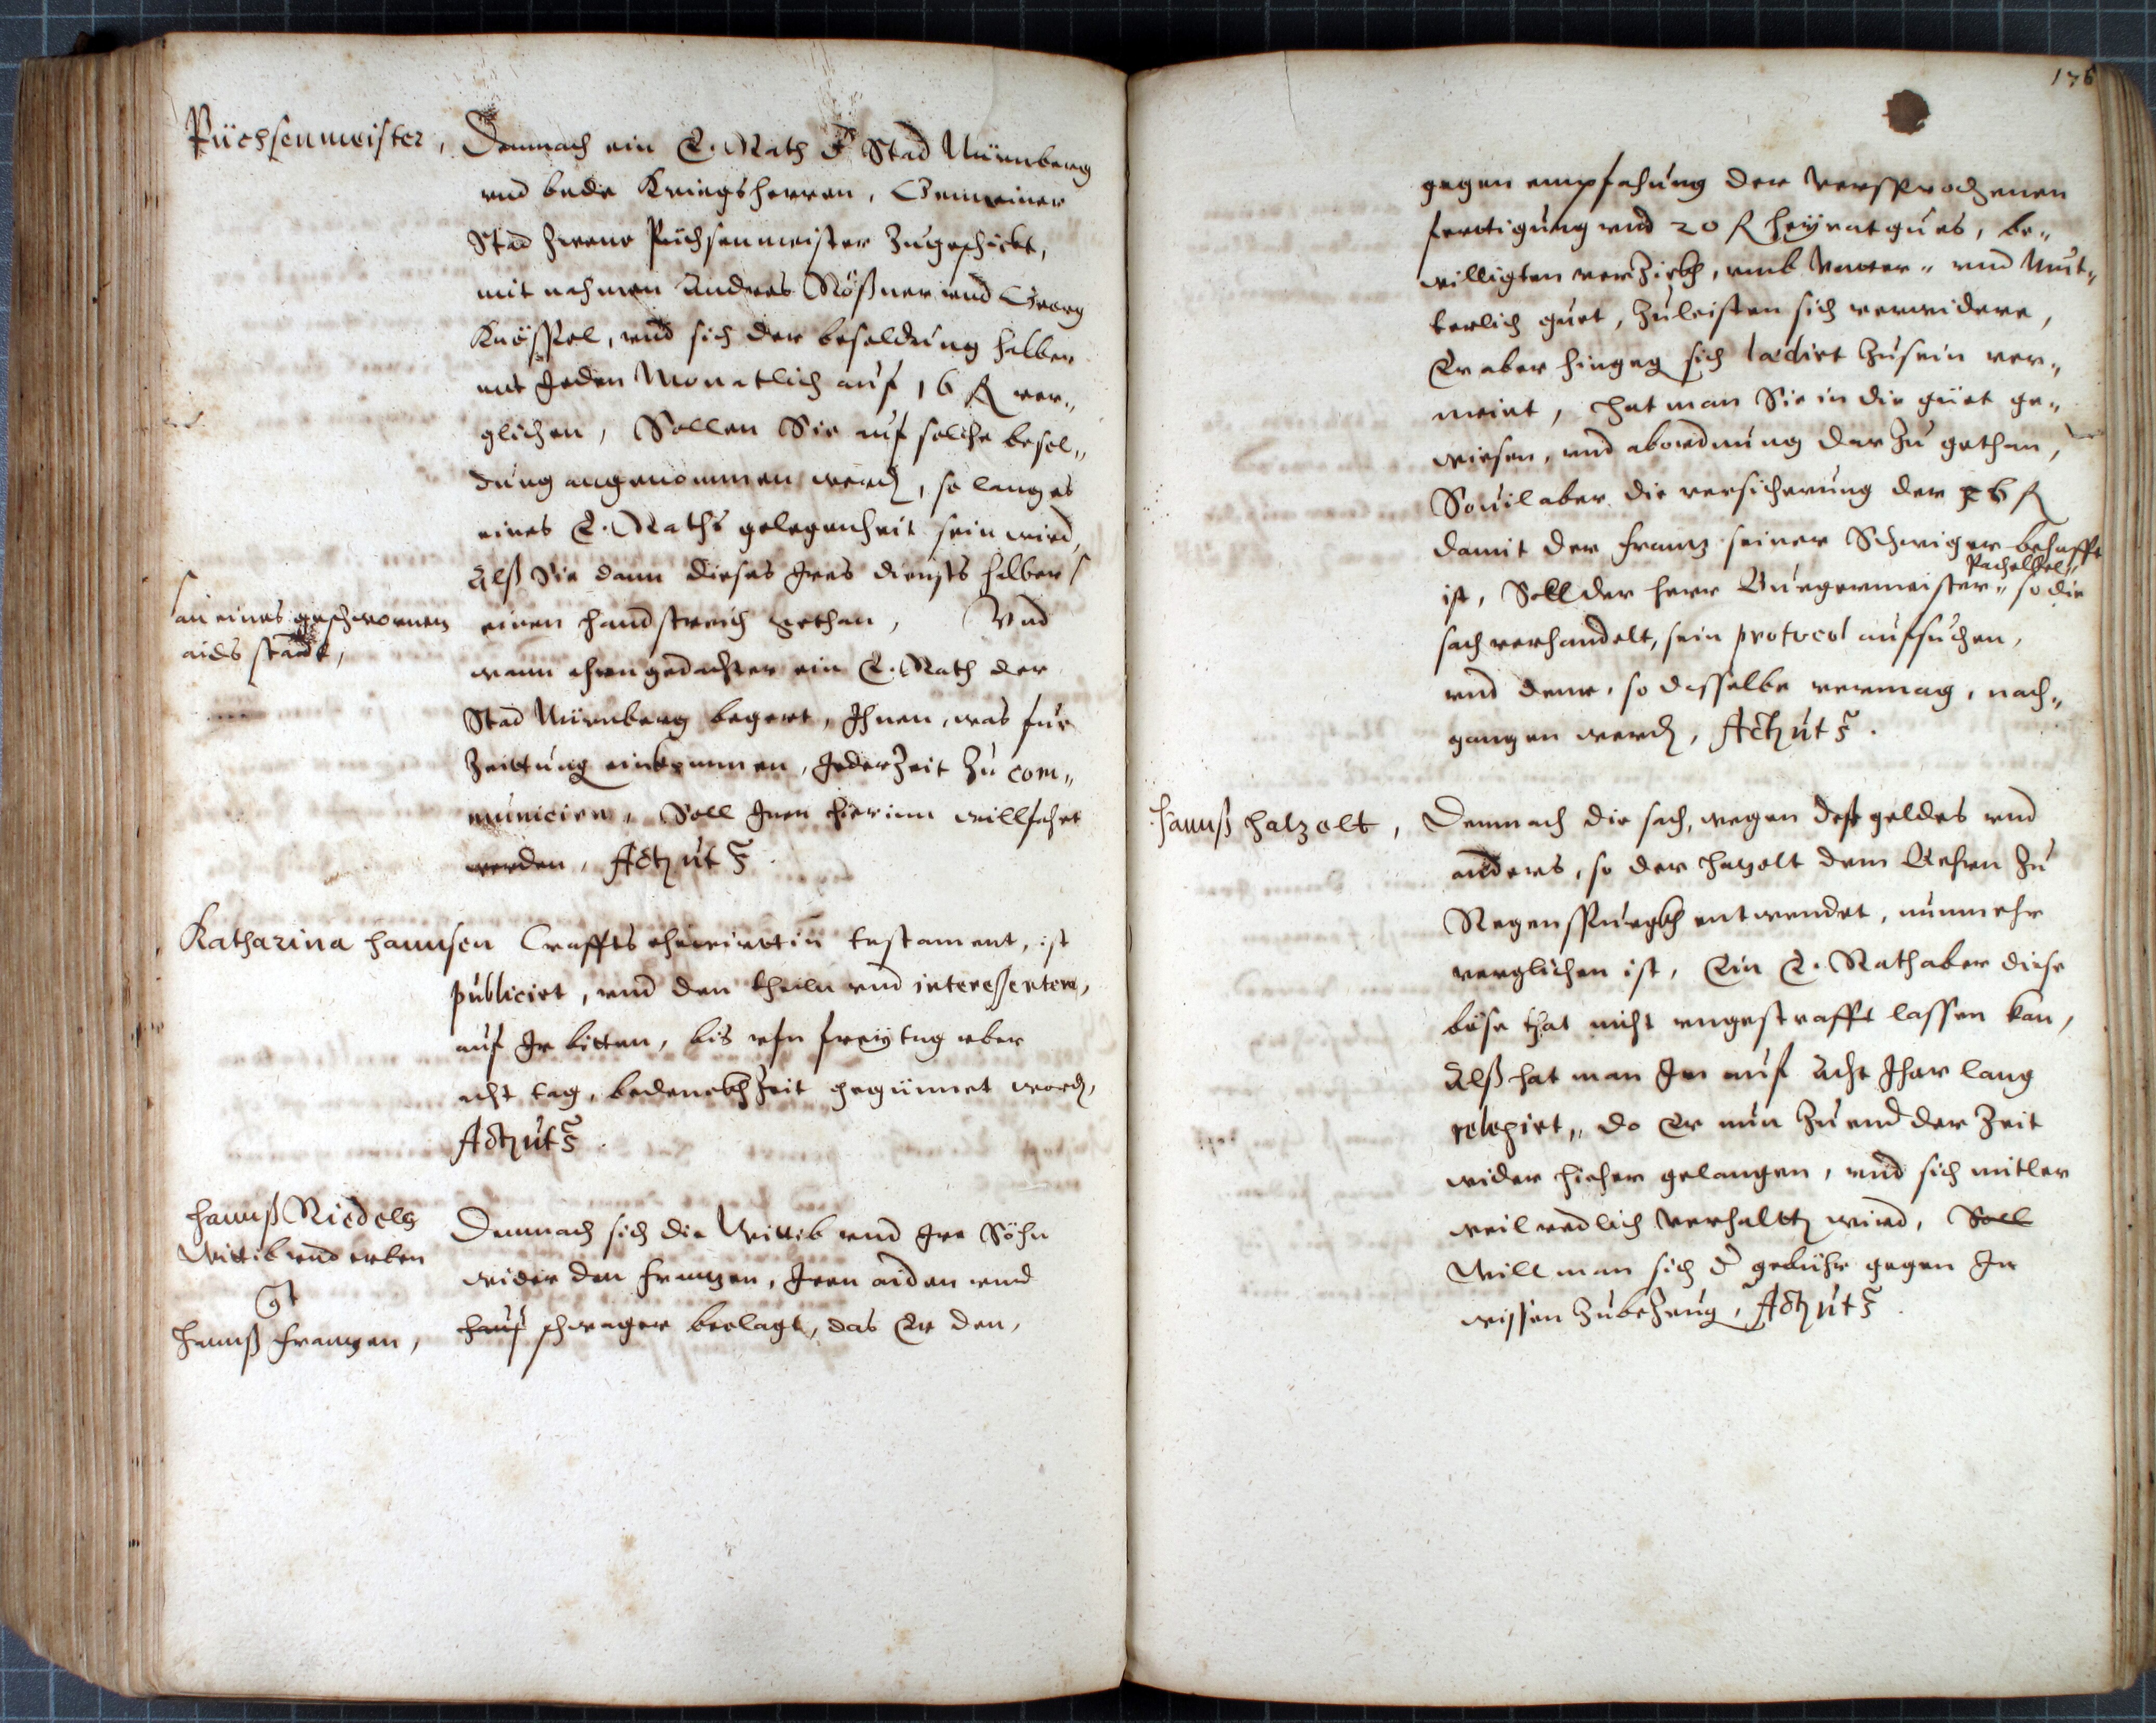 Püchsenmeister, Demnach ein E. Rath d Stad Nürmberg
vnd bede Kriegsherren, Gemeiner
Stad zwene Püchsenmeister zugeschickt,
mit nahmen Andreas Rößner vnd Georg
Knöspel, vnd sich der besoldung halber
mit Jeden Monatlich auf 16 fl ver„
glichen, Sollen Sie auf solche besol„
dung angenommen werd, so lang es
eines E. Raths gelegenheit sein wird,
Alß Sie dann dieses Jres diensts halber
an eines geschwornen
aids stadt,
einen handstreich gethan, Vnd
wann ehrengedachter ein E. Rath der
Stad Nürmberg begert, Jhnen, was für
Zeittung einkommen, Jederzeit zu com„
municirn, Soll Jnen hierinn willfahrt
werden, Act ut s.
Katharina hannsen Craffts ehewirttin testament, ist
publicirt, vnd den theiln vnd interessenten,
auf Jr bitten, bis vfn freytag vber
acht tag, bedenckhzeit gegünnet word,
Act ut s.
hannß Riedels
Wittib vnd erben
Ct
hannß Frantzen,
Demnach sich die Wittib vnd Jre Söhn
wider den Frantzen, Jren aiden vnd
schwager beclagt, das Er den,
176
gegen empfahung der versprochenen
fertigung vnd 20 fl heyratgues, be„
willigten verzickh, vmb Vatter„ und Müt„
terlich guet, zuleisten sich verwidere,
Er aber hingeg sich lædirt zusein ver„
meint, hat man Sie in die güet ge„
wiesen, vnd abordnung darzu gethan,
Souil aber die versicherung der 26 fl
damit der Frantz seiner Schwiger behafft
Pachelbel,
ist, Soll der herr Burgermeister„ so die
sach verhandelt, sein protocol aufsuchen,
vnd deme, so dasselbe vermag, nach„
gangen werd, Act ut s.
hannß hatzolt, Demnach die sach, wegen deß geldes vnd
anders, so der hatzolt dem Behen zu
Regenspurgkh entwendet, nunmehr
verglichen ist, Ein E. Rath aber diese
böse that nicht vngestrafft lassen kan,
Alß hat man Jn auf Acht Jhar lang
relegirt, do Er nun zu end der Zeit
wider hieher gelangen, vnd sich mitler
weil redlich verhaltt wird, Soll
Will man sich d gebühr gegen Jn
wissen zubezeug, Act ut s.